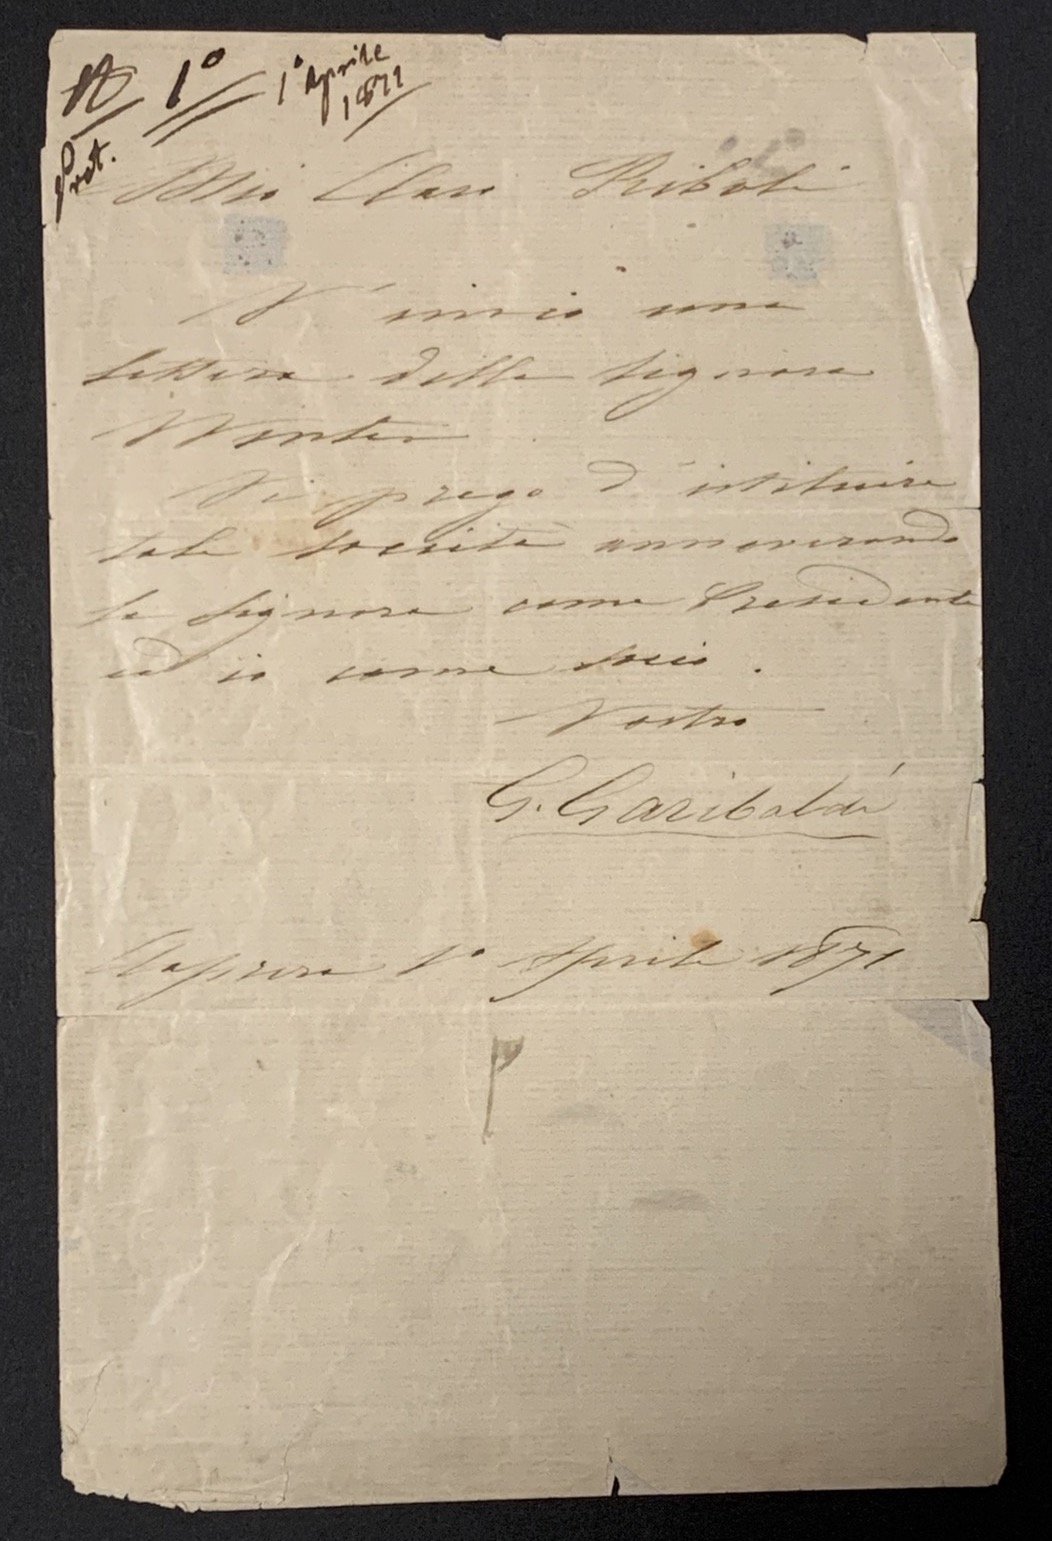 N 1° 1° Aprile
1871
Prot.
Mio Caro Riboli
V'invio una
lettera della Signora
Winter
Vi prego d'istituire
tale società annoverando
la Signora come Presidente
ed io come socio.
Vostro
G. Garibaldi
Caprera 1° Aprile 1871